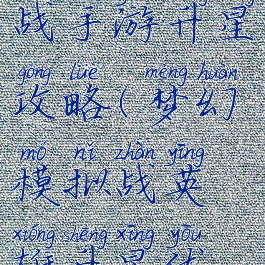 战手游升星
gōng lüè mèng huàn
攻略(梦幻
mó nǐ zhàn yīng
模拟战英
xióng shēng xīng yóu